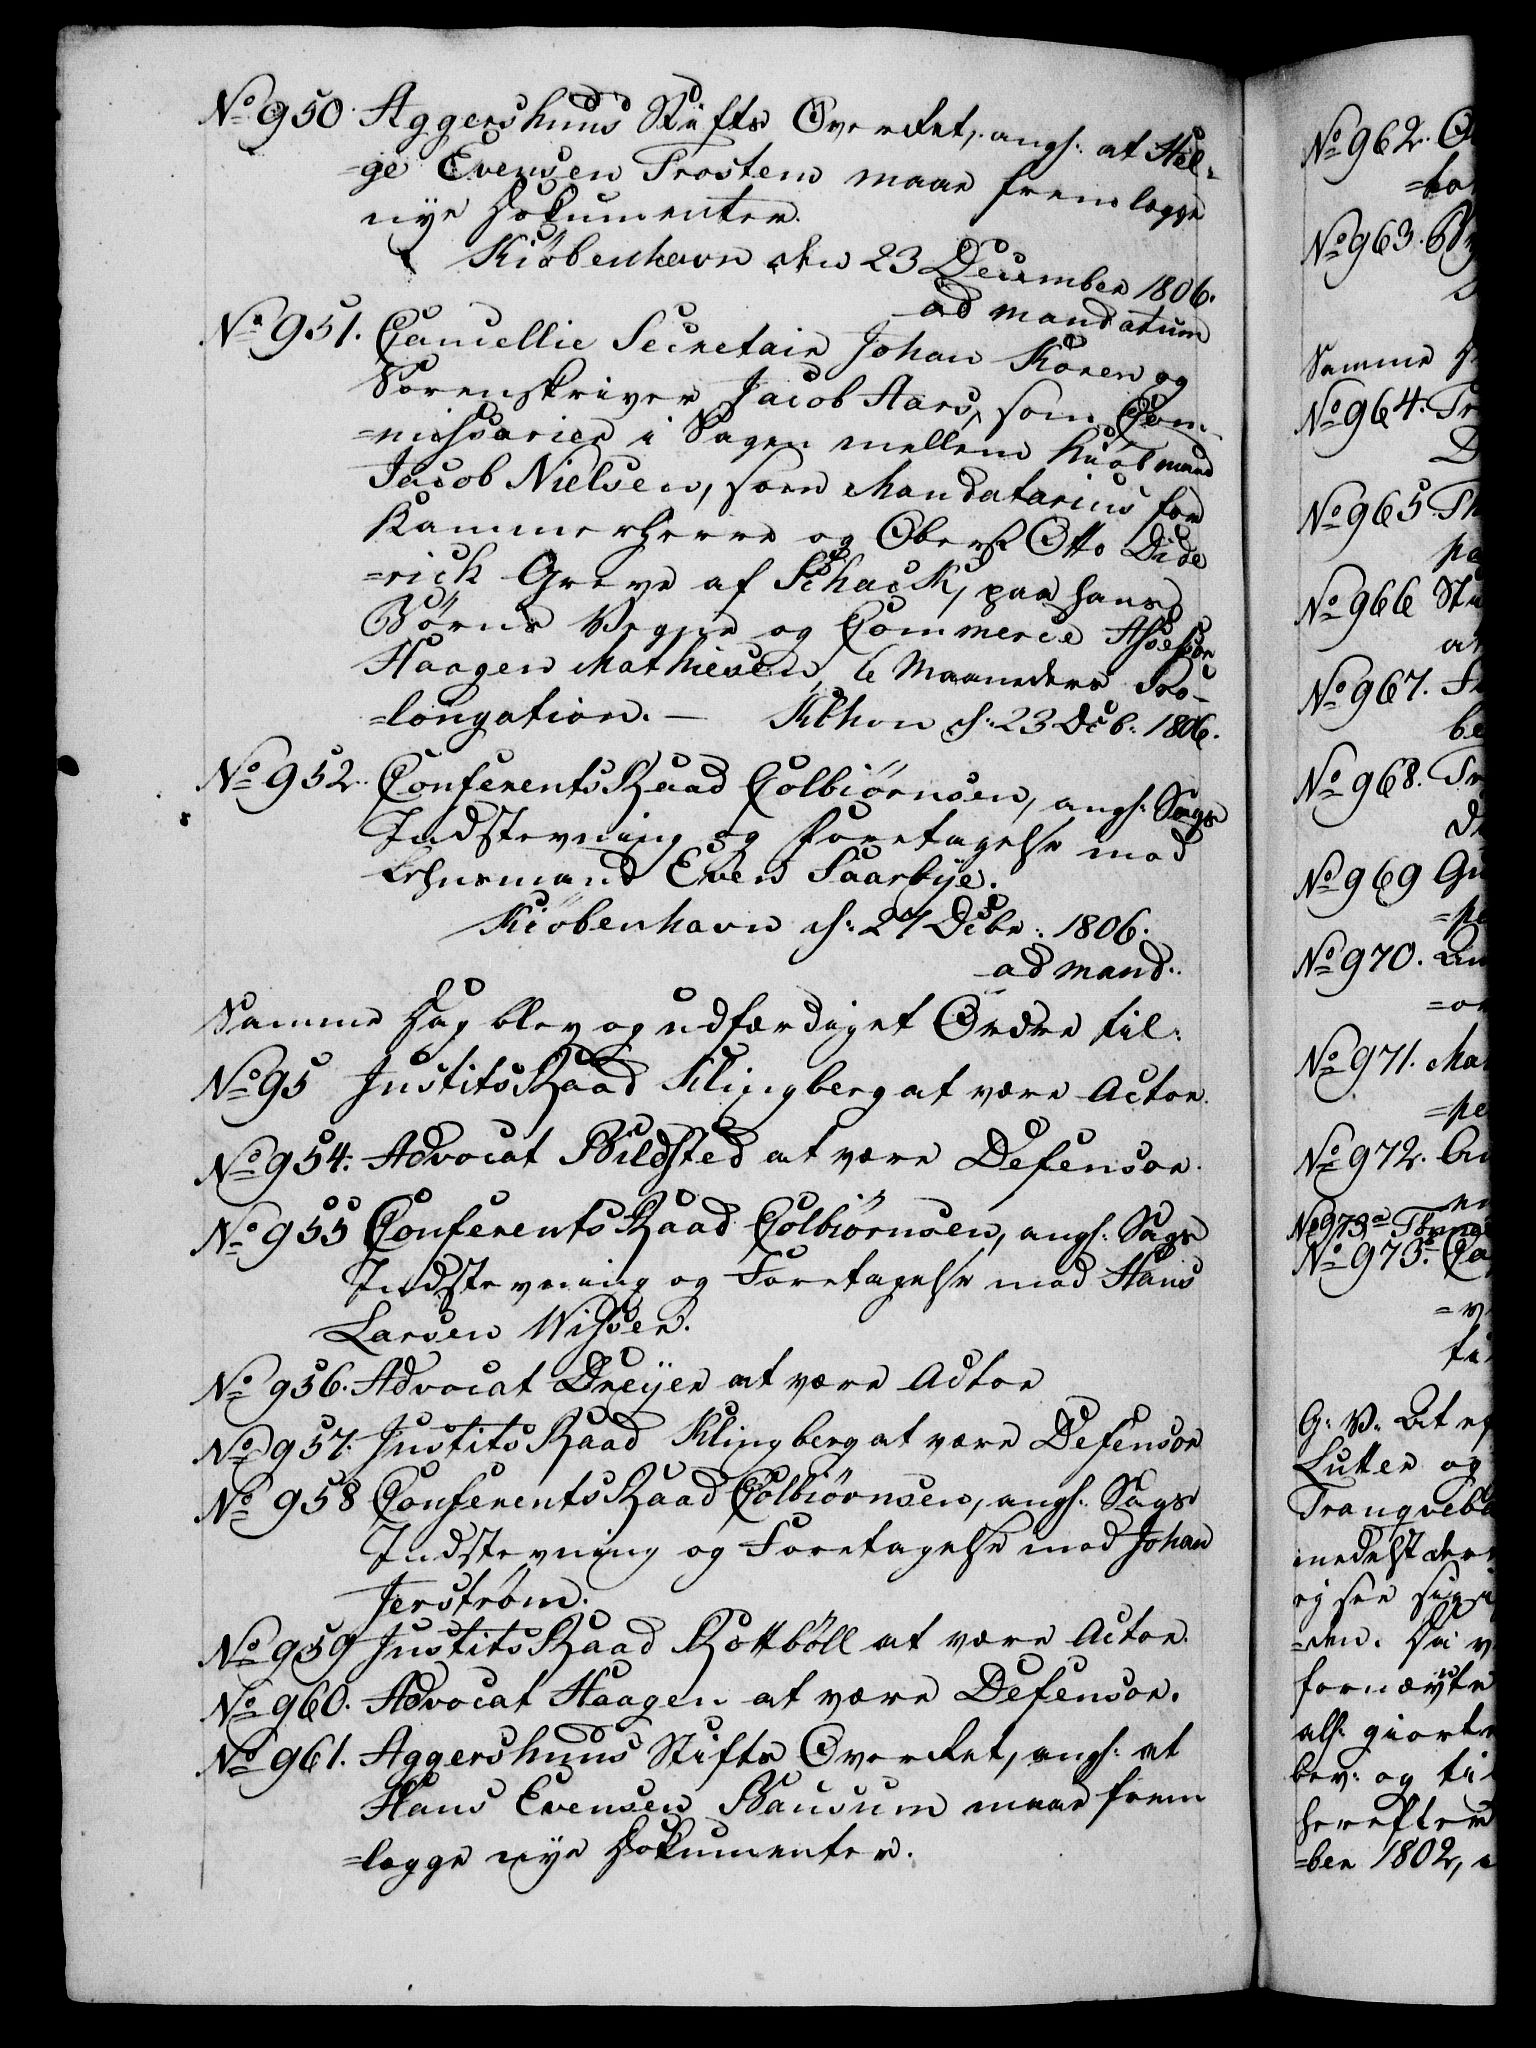 No 950. Aggershuus Stifts Overret, angl. at Hel-
=ge Evensen Trostem maae fremlegge
nye Dokumenter.
Kiöbenhavn den 23 December 1806.
ad mandatum
No 951. Cancellie Secretair Johan Koren og
Sorenskriver Jacob Aars, som Com-
=missarier i Sagen mellem Kiöbmand
Jacob Nielsen, som Mandatarius for
Kammerherre og Oberst Otto Dide
=rich Greve af Schack, paa hans
Börns Vegne og Commerce Assessor
Haagen Mathiesen, 6 Maaneders Pro-
=longation. — Kbhvn d: 23 Dcb: 1806.
No 952. ConferentsRaad Colbiörnsen, angl. Sags
Indstevning og Foretagelse mod
Lehnsmand Even Saarbye.
Kiöbenhavn d: 27 Dcbr: 1806.
ad mand:
Samme Dag blev og udfærdiget Ordre til:
No 95 JustitsRaad Klingberg at være Actor.
No 954. Advocat Bildsted at være Defensor.
No 955 ConferentsRaad Colbiörnsen, angl. Sags
Indstevning og Foretagelse mod Hans
Larsen Wissen.
No 956. Advocat Dreÿer at være Actor
No 957. JustitsRaad Klingberg at være Defensor
No 958 ConferentsRaad Colbiörnsen, angl. Sags
Indstevning og Foretagelse mod Johan
Jerström.
No 959 JustitsRaad Rottböll at være Actor.
No 960. Advocat Haagen at være Defensor.
No 961. Aggershuus Stifts Overret, angl. at
Hans Evensen Bausum maae frem
=legge nye Dokumenter.
No 962.
No 963.
Samme
No 964.
No 965
No 966
No 967.
No 968.
No 969
No 970.
No 971.
No 972.
No 973a
No 973b
G: V: At
Lutter og
Tranqveb
medelst
fornævte
giort
bev: og
herefter
=ber 1802,